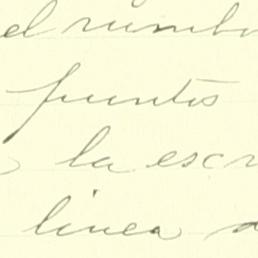 el rumbo
puntos
la escr
linea